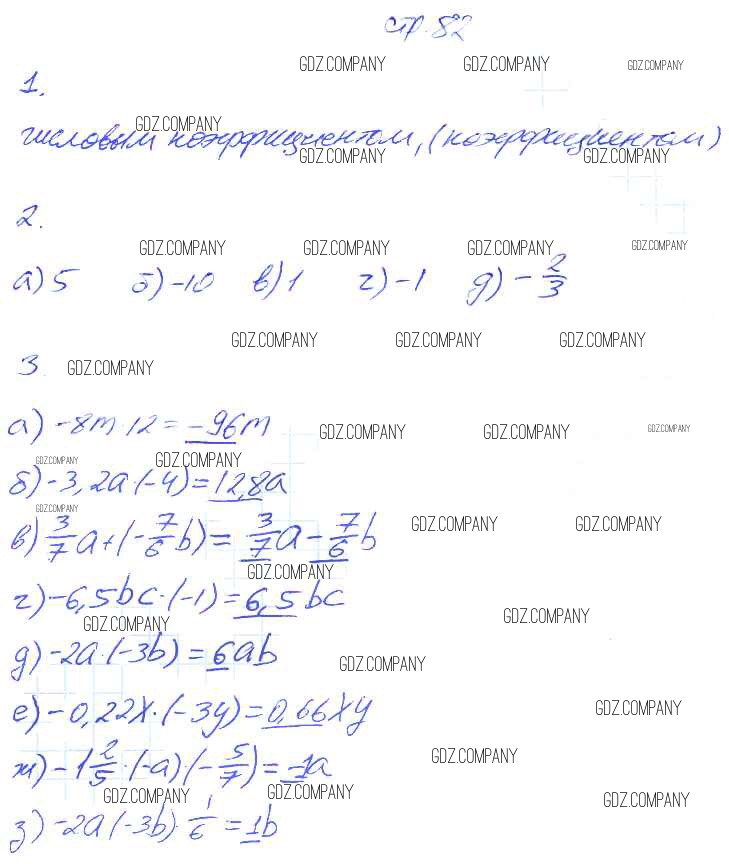 стр. 82
GDZ.COMPANY GDZ.COMPANY GDZ.COMPANY
1.
GDZ.COMPANY
числовым коэффициентом, (коэффициентом)
GDZ.COMPANY GDZ.COMPANY
2.
GDZ.COMPANY GDZ.COMPANY GDZ.COMPANY GDZ.COMPANY
а) 5 б) -10 в) 1 г) -1 д) - 2/3
GDZ.COMPANY GDZ.COMPANY GDZ.COMPANY
3 GDZ.COMPANY
а) -8m · 12 = -96m
GDZ.COMPANY GDZ.COMPANY GDZ.COMPANY
GDZ.COMPANY GDZ.COMPANY
б) -3,2a · (-4) = 12,8a
GDZ.COMPANY
в) 3/7 a + (- 7/6 b) = 3/7 a - 7/6 b
GDZ.COMPANY GDZ.COMPANY
GDZ.COMPANY
г) -6,5bc · (-1) = 6,5bc
GDZ.COMPANY
GDZ.COMPANY
д) -2a · (-3b) = 6ab
GDZ.COMPANY
е) -0,22x · (-3y) = 0,66xy
GDZ.COMPANY
ж) -1 2/5 · (-a) · (- 5/7) = -1a
GDZ.COMPANY
GDZ.COMPANY GDZ.COMPANY GDZ.COMPANY
з) -2a (-3b) · 1/6 = 1b